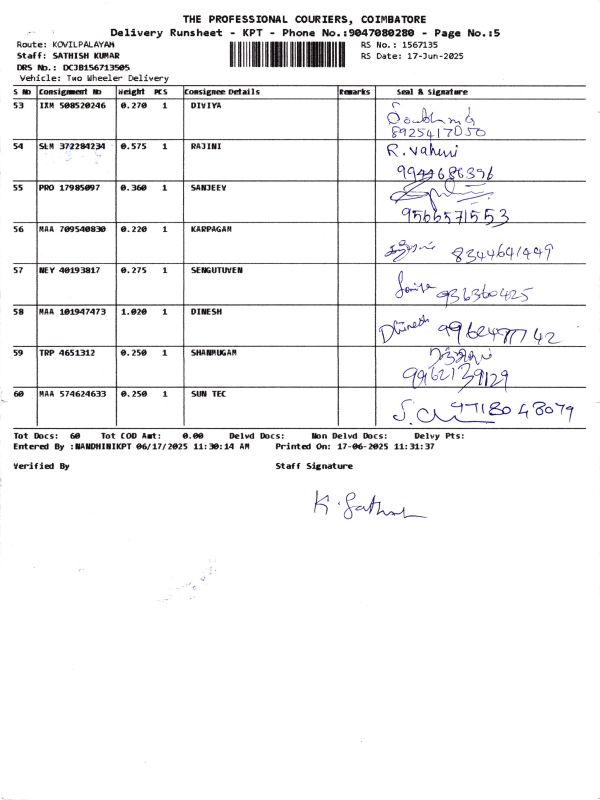 THE PROFESSIONAL COURIERS, COIMBATORE
Delivery Runsheet - KPT - Phone No.:9047080280 - Page No.:5
Route: KOVILPALAYAM
RS No.: 1567135
Staff: SATHISH KUMAR
RS Date: 17-Jun-2025
DRS No.: DCJB156713505
Vehicle: Two Wheeler Delivery
S No Consignment No Weight PCS Consignee Details Remarks Seal & Signature
53 IXM 508520246 0.270 1 DIVIYA
8925417050
54 SLM 372284234 0.575 1 RAJINI R. Vaheni
9944686396
55 PRO 17985097 0.360 1 SANJEEV
9566571553
56 MAA 709540830 0.220 1 KARPAGAM 8344641449
57 NEY 40193817 0.275 1 SENGUTUVEN 936360425
58 MAA 101947473 1.020 1 DINESH Dhinesh 9962497742
59 TRP 4651312 0.250 1 SHANMUGAM
9962139129
60 MAA 574624633 0.250 1 SUN TEC 9718048079
Tot Docs: 60 Tot COD Amt: 0.00 Delvd Docs: Non Delvd Docs: Delvy Pts:
Entered By :NANDHINIKPT 06/17/2025 11:30:14 AM Printed On: 17-06-2025 11:31:37
Verified By Staff Signature
K. Sathish